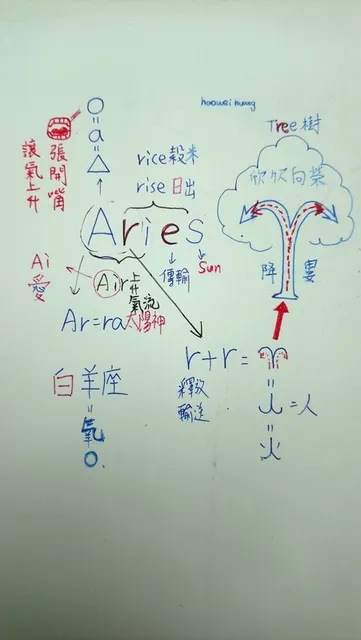 hoowei hung
O
=
a
=
△
張開嘴
讓氣上升
rice 穀米
rise 日出
Aries
傳輸
Sun
Ai
愛
Air
上升氣流
Ar=ra太陽神
白羊座
=
氧
O.
r+r=
釋放
輸送
=
人=人
=
火
Tree 樹
欣欣向榮
降